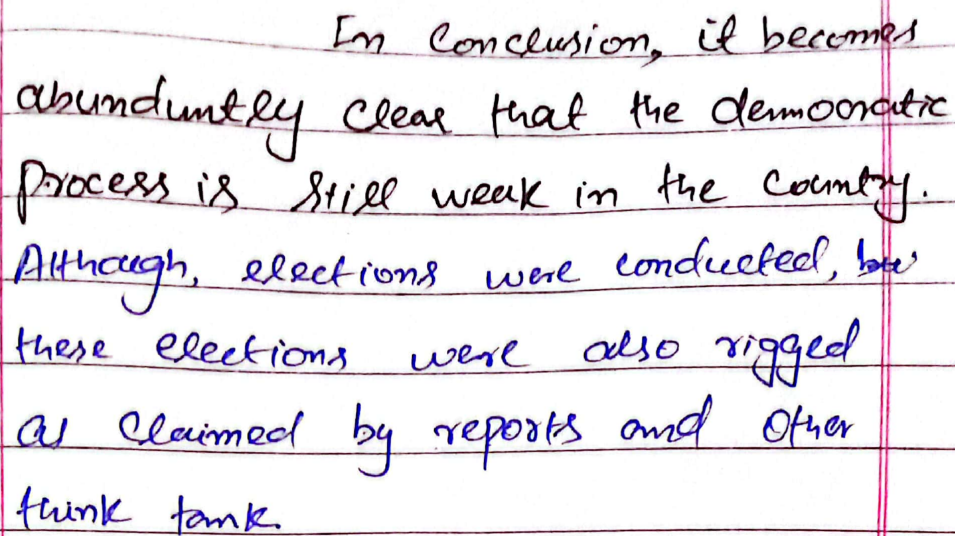 In Conclusion, it becomes
abunduntly clear that the democratic
process is still weak in the country.
Although, elections were conducted, but
these elections were also rigged
as claimed by reports and other
think tank.